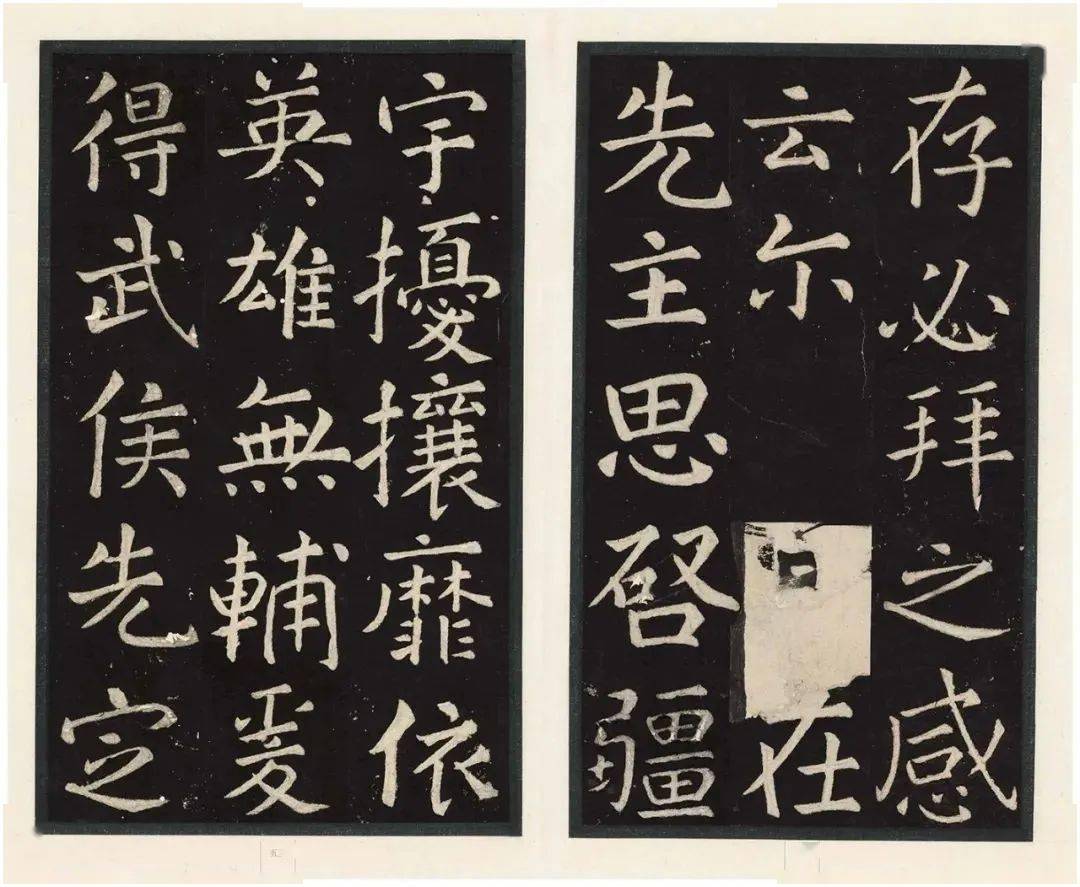 存必拜之感
云尔　　在
先主思啓疆
宇擾攘靡依
英雄無輔爰
得武侯先定